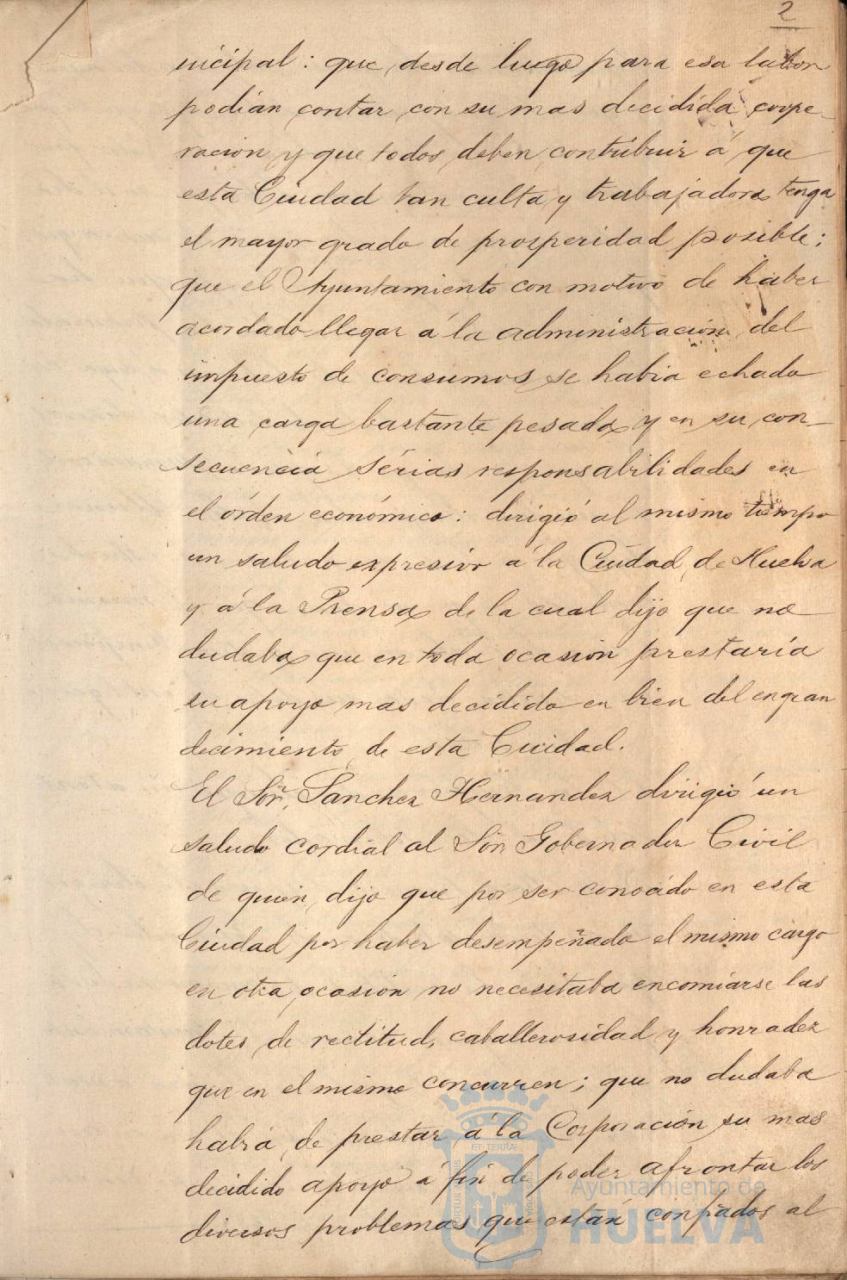 2
nicipal: que desde luego para esa labor
podian contar con su mas decidida coope-
racion y que todos deben contribuir á que
esta Ciudad tan culta y trabajadora tenga
el mayor grado de prosperidad posible;
que el Ayuntamiento con motivo de haber
acordado llegar á la administración del
impuesto de consumos se habia echado
una carga bastante pesada y en su con-
secuencia sérias responsabilidades en
el órden económico: dirigió al mismo tiempo
un saludo expresivo á la Ciudad de Huelva
y á la Prensa de la cual dijo que no
dudaba que en toda ocasión prestaría
su apoyo mas decidido en bien del engran
decimiento de esta Ciudad.
El Sor. Sanchez Hernandez dirigió un
saludo cordial al Sór Gobernador Civil
de quien dijo que por ser conocido en esta
Ciudad por haber desempeñado el mismo cargo
en otra ocasión no necesitaba encomiarse las
dotes de rectitud, caballerosidad y honradez
que en el mismo concurren; que no dudaba
habrá de prestar á la Corporación su mas
decidido apoyo á fin de poder afrontar los
diversos problemas que están confiados al
Ayuntamiento de
HUELVA